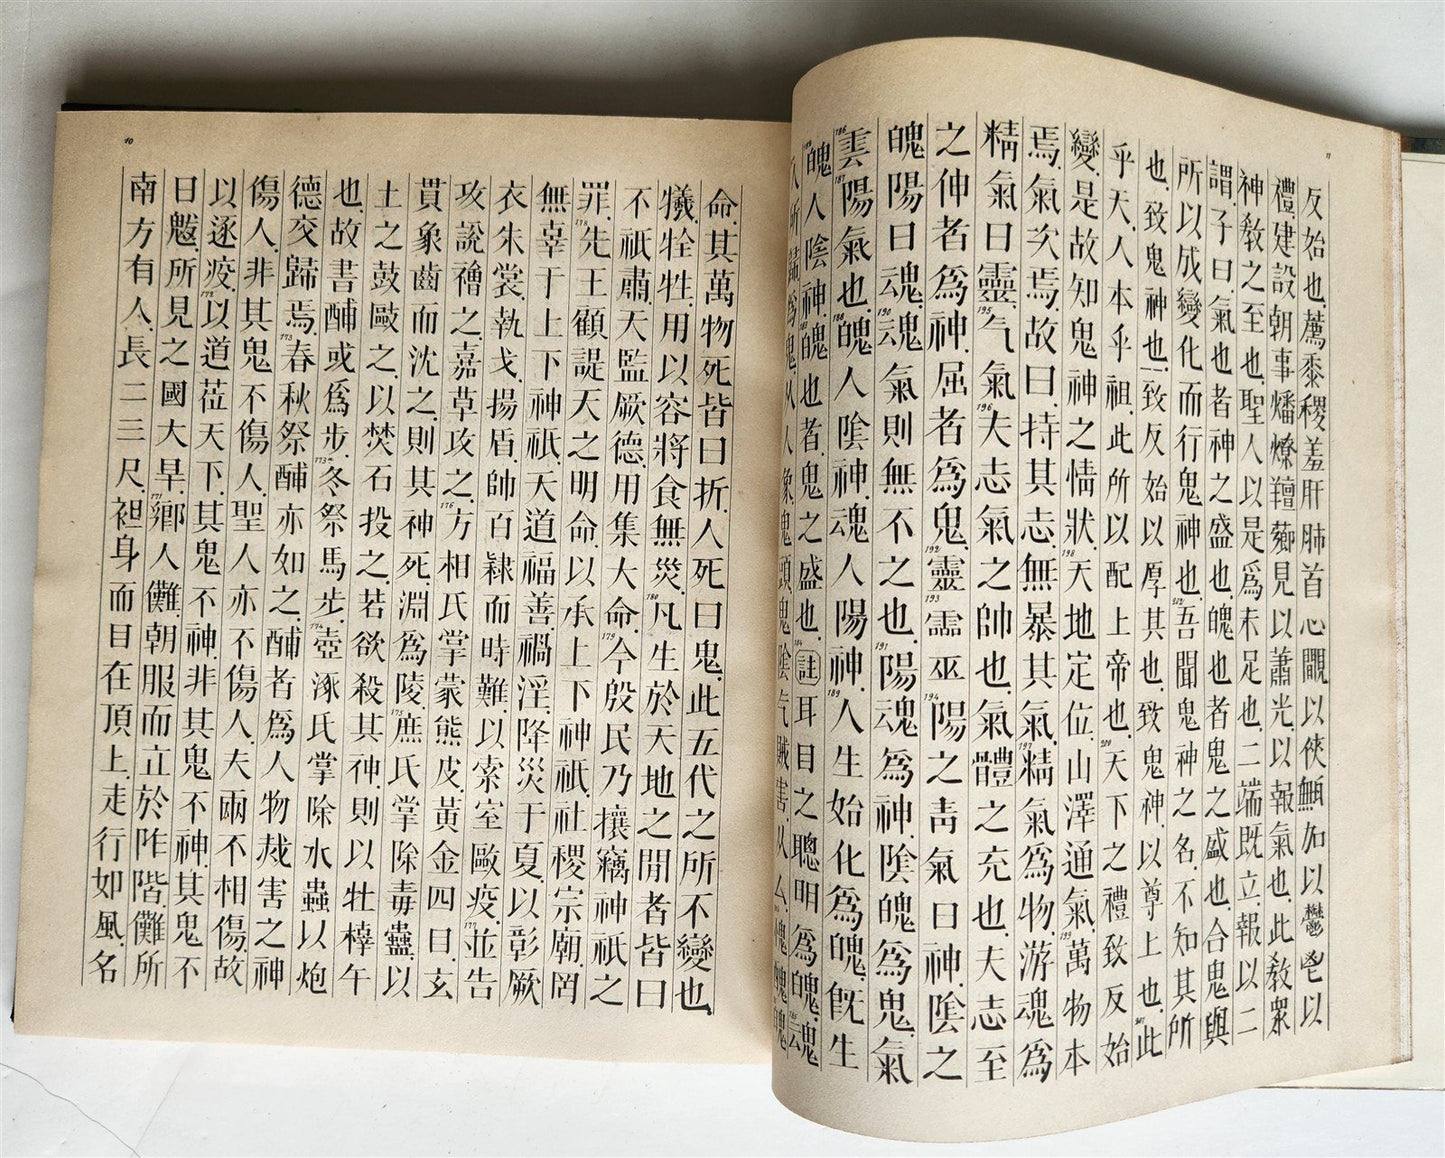 10
南方有人.長二三尺.袒身而目在頂上.走行如風.名
曰魃.所見之國大旱.171鄉人儺.朝服而立於阼階.儺所
以逐疫.172以道莅天下.其鬼不神.非其鬼不神.其鬼不
傷人.非其鬼不傷人.聖人亦不傷人.夫兩不相傷.故
德交歸焉.173春秋祭酺亦如之.酺者爲人物烖害之神
也.故書酺或爲步.173a冬祭馬步.174壺涿氏掌除水蟲.以炮
土之鼓歐之.以焚石投之.若欲殺其神.則以牡橭午
貫象齒而沈之.則其神死.淵爲陵.175庶氏掌除毒蠱.以
攻說禬之.嘉草攻之.176方相氏掌蒙熊皮.黃金四目.玄
衣朱裳.執戈揚盾.帥百隸而時難.以索室歐疫.177並告
無辜于上下神祇.天道福善禍淫.降災于夏.以彰厥
罪.178先王顧諟天之明命.以承上下神祇.社稷宗廟.罔
不祇肅.天監厥德.用集大命.179今殷民乃攘竊神祇之
犧牷牲.用以容.將食無災.180凡生於天地之間者皆曰
命.其萬物死皆曰折.人死曰鬼.此五代之所不變也.
11
人所歸爲鬼.从人.象鬼頭.鬼陰气賊害.从厶.
魄.人陰神.183魄也者.鬼之盛也.184註耳目之聰明爲魄.185云魂
186雲187陽氣也.188魄人陰神.魂人陽神.189人生始化爲魄.旣生
魄.陽曰魂.190魂氣則無不之也.191陽魂爲神.陰魄爲鬼.氣
之伸者爲神.屈者爲鬼.192靈193霝巫194陽之靑氣曰神.陰之
精氣曰靈.195气氣196夫志氣之帥也.氣體之充也.夫志至
焉.氣次焉.故曰.持其志.無暴其氣.197精氣爲物.游魂爲
變.是故知鬼神之情狀.198天地定位.山澤通氣.199萬物本
乎天.人本乎祖.此所以配上帝也.200天下之禮致反始
也.致鬼神也.致反始以厚其也.致鬼神以尊上也.201此
所以成變化而行鬼神也.202吾聞鬼神之名.不知其所
謂.子曰.氣也者神之盛也.魄也者鬼之盛也.合鬼與
神.敎之至也.聖人以是爲未足也.二端旣立.報以二
禮.建設朝事.燔燎羶薌.見以蕭光.以報氣也.此敎衆
反始也.薦黍稷.羞肝肺首心.覸以俠甒.加以鬱鬯.以